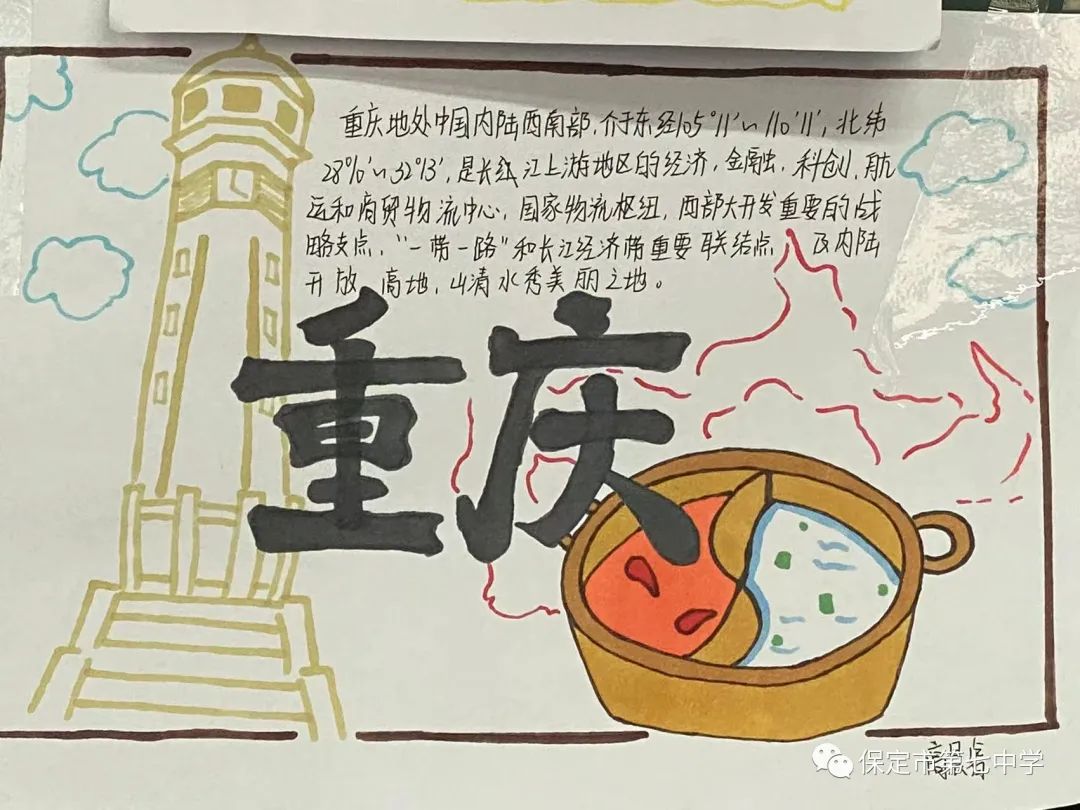 重庆地处中国内陆西南部,介于东经105°11′~110°11′,北纬
28°10′~32°13′,是长江上游地区的经济,金融,科创,航
运和商贸物流中心,国家物流枢纽,西部大开发重要的战
略支点,“一带一路”和长江经济带重要联结点 及内陆
开放 高地,山清水秀美丽之地。
重庆
保定市第七中学